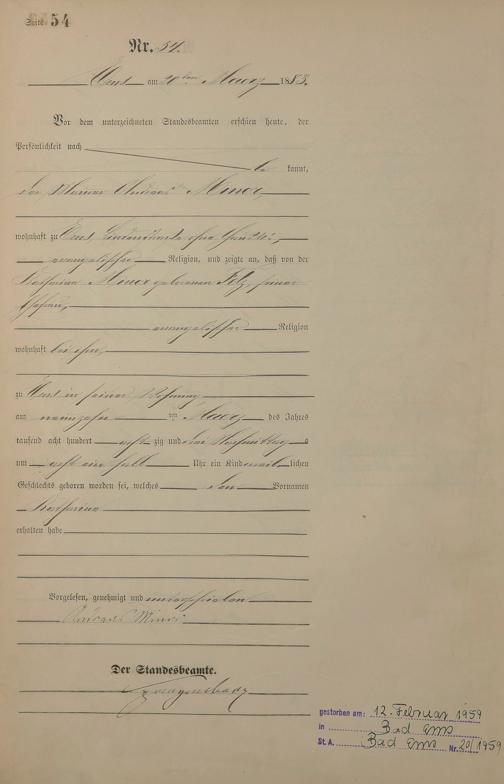 Seite 54
Nr. 54.
Ems am 20ten Maerz 1883.
Vor dem unterzeichneten Standesbeamten erschien heute, der
Persönlichkeit nach
be kannt,
der Andreas
wohnhaft zu Ems,
evangelischer Religion, und zeigte an, daß von der
Katharina geborenen seiner
Ehefrau,
evangelischer Religion
wohnhaft bei ihm,
zu Ems in seiner Wohnung
am neunzehn ten Maerz des Jahres
tausend acht hundert acht zig und drei Nachmittags
um acht ein halb Uhr ein Kind weib lichen
Geschlechts geboren worden sei, welches den Vornamen
Katharina
erhalten habe
Vorgelesen, genehmigt und unterschrieben
Andreas
Der Standesbeamte.
gestorben am: 12. Februar 1959
in Bad Ems
St.A. Bad Ems Nr. 20/1959